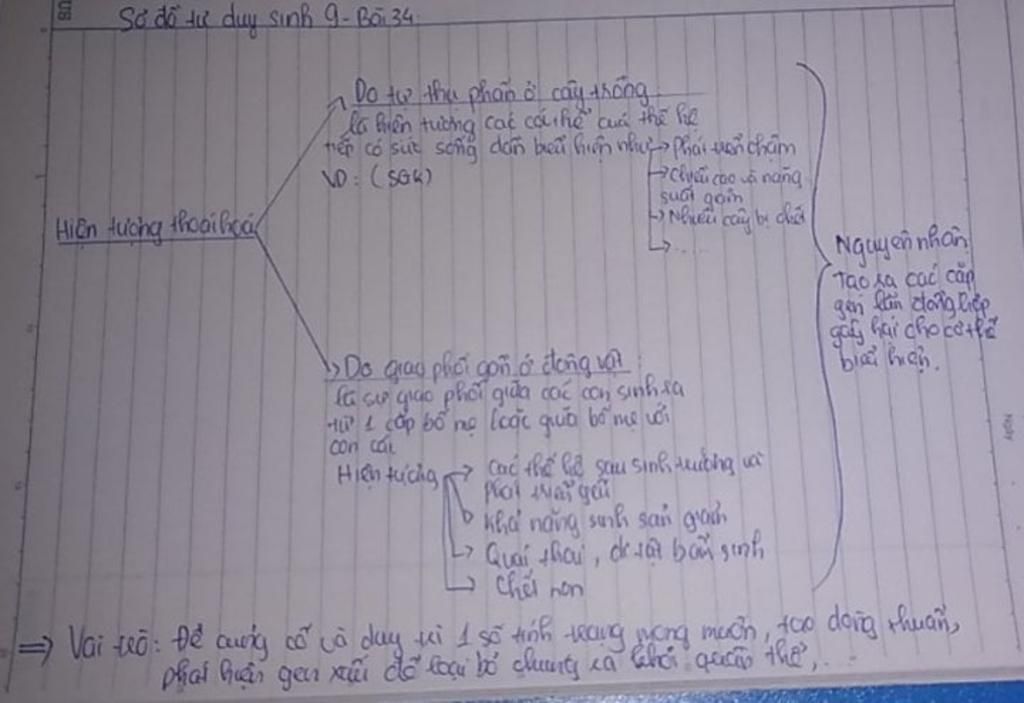 Sơ đồ tư duy sinh 9 - Bài 34:
Hiện tượng thoái hoá
Do tự thụ phấn ở cây trồng
là hiện tượng các cá thể của thế hệ
tiếp có sức sống dần biểu hiện như
→ Phát triển chậm
→ Chiều cao và năng
suất giảm
→ Nhiều cây bị chết
→ .....
VD: (SGK)
→ Do giao phối gần ở động vật :
là sự giao phối giữa các con sinh ra
từ 1 cặp bố mẹ hoặc giữa bố mẹ với
con cái
Hiện tượng
→ Các thế hệ sau sinh trưởng và
phát triển yếu
→ Khả năng sinh sản giảm
→ Quái thai, dị tật bẩm sinh
→ Chết non
Nguyên nhân
Tạo ra các cặp
gen lặn đồng hợp
gây hại cho cơ thể
biểu hiện.
⇒ Vai trò: Để củng cố và duy trì 1 số tính trạng mong muốn, tạo dòng thuần,
phát hiện gen xấu để loại bỏ chúng ra khỏi quần thể,...
Ngày